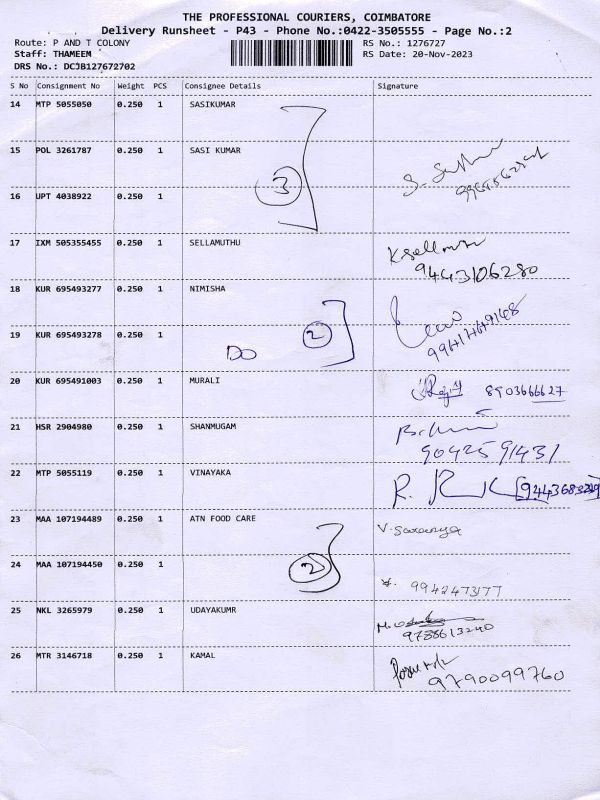 THE PROFESSIONAL COURIERS, COIMBATORE
Delivery Runsheet - P43 - Phone No.:0422-3505555 - Page No.:2
Route: P AND T COLONY RS No.: 1276727
Staff: THAMEEM RS Date: 20-Nov-2023
DRS No.: DCJB127672702
S No Consignment No Weight PCS Consignee Details Signature
14 MTP 5055050 0.250 1 SASIKUMAR
15 POL 3261787 0.250 1 SASI KUMAR
16 UPT 4038922 0.250 1 3
17 IXM 505355455 0.250 1 SELLAMUTHU
9443106280
18 KUR 695493277 0.250 1 NIMISHA
19 KUR 695493278 0.250 1 2
DO
20 KUR 695491003 0.250 1 MURALI 8903666627
21 HSR 2904980 0.250 1 SHANMUGAM
9042591431
22 MTP 5055119 0.250 1 VINAYAKA
23 MAA 107194489 0.250 1 ATN FOOD CARE V. Saranya
24 MAA 107194450 0.250 1 2
25 NKL 3265979 0.250 1 UDAYAKUMR
9738613240
26 MTR 3146718 0.250 1 KAMAL
9790099760